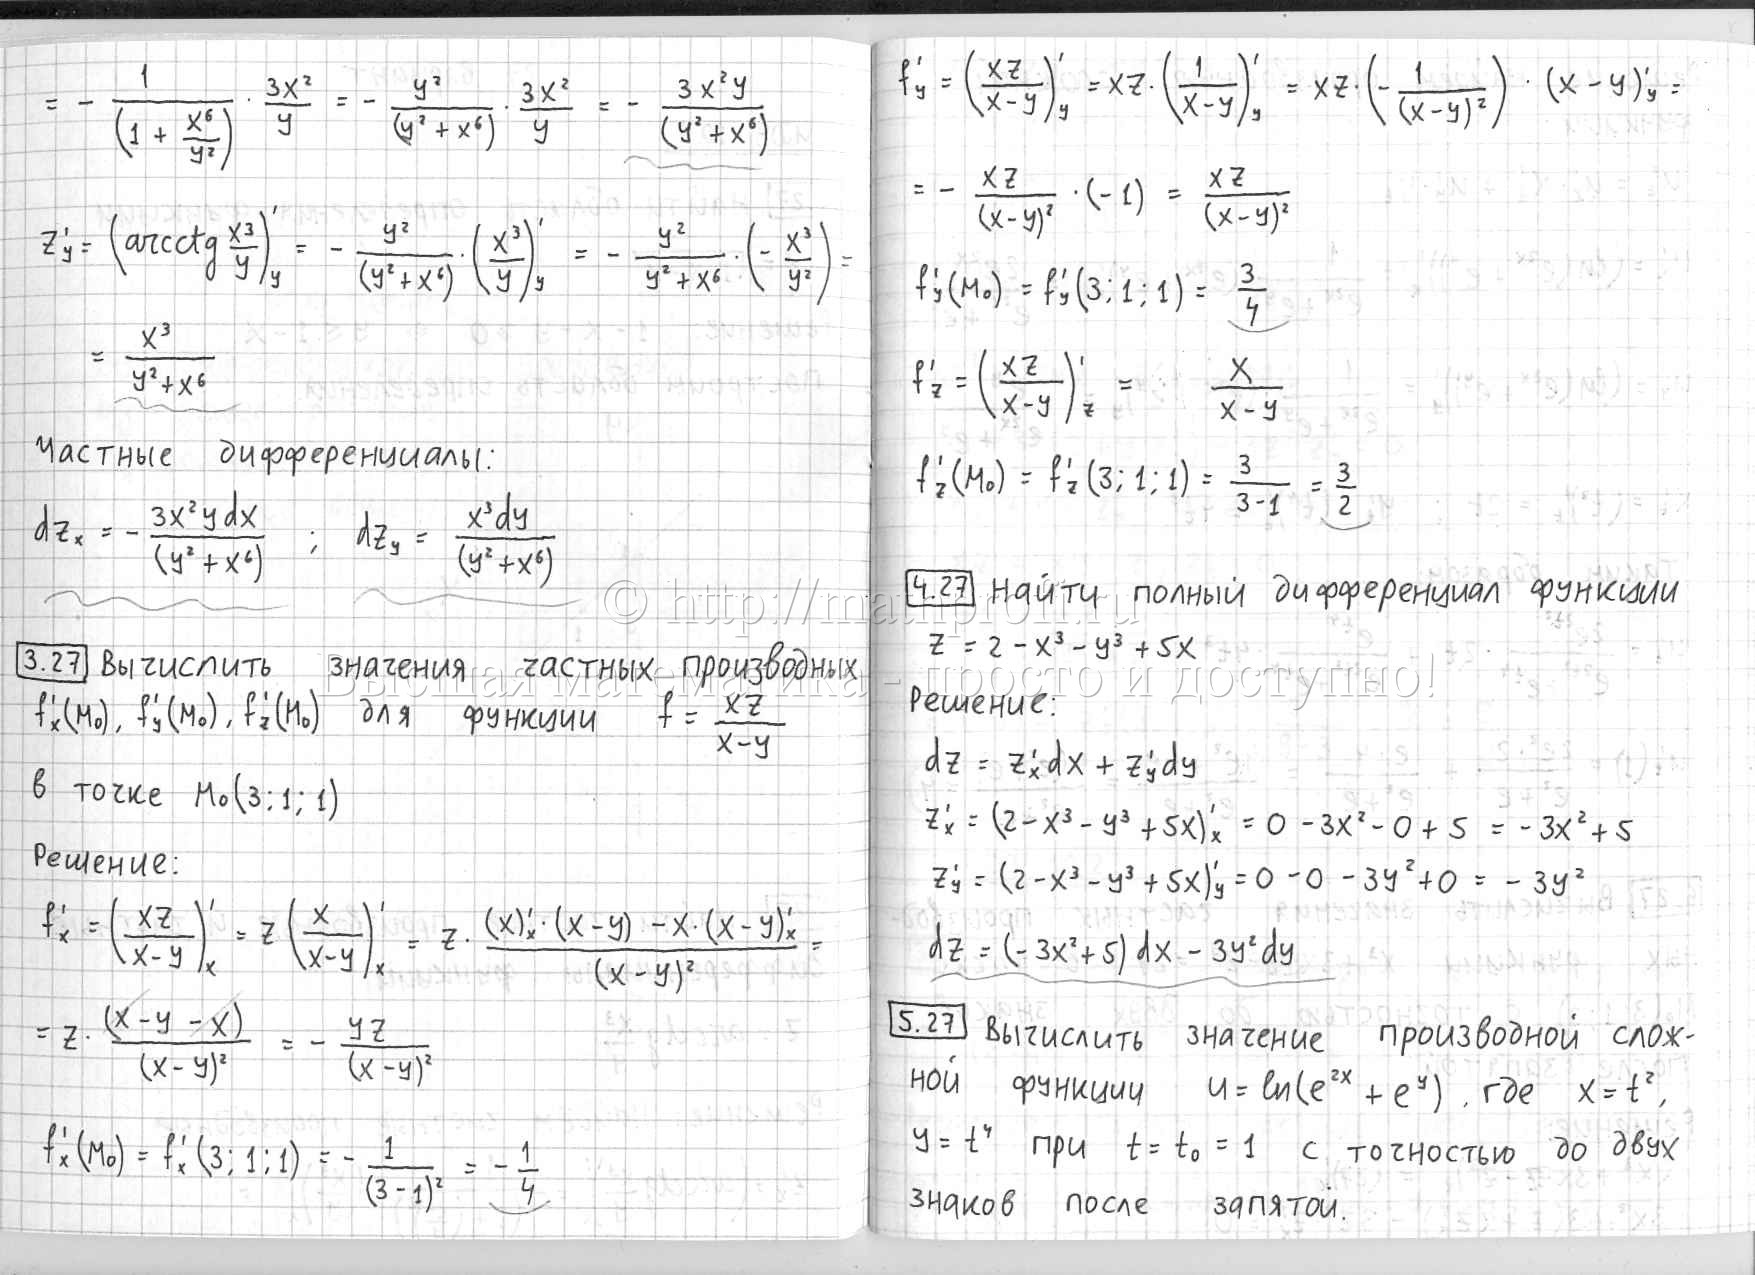 = - 1/(1 + x⁶/y²) · 3x²/y = - y²/(y² + x⁶) · 3x²/y = - 3x²y/(y² + x⁶)
z'y = (arcctg x³/y)'y = - y²/(y² + x⁶) · (x³/y)'y = - y²/(y² + x⁶) · (- x³/y²) =
= x³/(y² + x⁶)
Частные дифференциалы:
dzx = - 3x²y dx/(y² + x⁶) ; dzy = x³dy/(y² + x⁶)
3.27 Вычислить значения частных производных
f'x(M₀), f'y(M₀), f'z(M₀) для функции f = xz/(x-y)
в точке M₀(3; 1; 1)
Решение:
f'x = (xz/(x-y))'x = z (x/(x-y))'x = z · ((x)'x · (x-y) - x · (x-y)'x)/(x-y)² =
= z · (x - y - x)/(x-y)² = - yz/(x-y)²
f'x(M₀) = f'x(3; 1; 1) = - 1/(3-1)² = - 1/4
f'y = (xz/(x-y))'y = xz · (1/(x-y))'y = xz · (- 1/(x-y)²) · (x-y)'y =
= - xz/(x-y)² · (-1) = xz/(x-y)²
f'y(M₀) = f'y(3; 1; 1) = 3/4
f'z = (xz/(x-y))'z = x/(x-y)
f'z(M₀) = f'z(3; 1; 1) = 3/(3-1) = 3/2
4.27 Найти полный дифференциал функции
z = 2 - x³ - y³ + 5x
Решение:
dz = z'x dx + z'y dy
z'x = (2 - x³ - y³ + 5x)'x = 0 - 3x² - 0 + 5 = - 3x² + 5
z'y = (2 - x³ - y³ + 5x)'y = 0 - 0 - 3y² + 0 = - 3y²
dz = (- 3x² + 5) dx - 3y² dy
5.27 Вычислить значение производной слож-
ной функции u = ln(e²ˣ + eʸ), где x = t²,
y = t⁴ при t = t₀ = 1 с точностью до двух
знаков после запятой.
© http://mathprofi.ru
Высшая математика - просто и доступно!